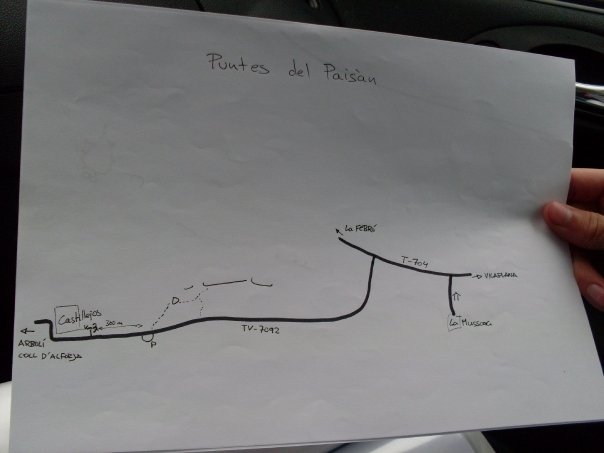 Puntes del Paisàn
La FEBRÓ
T-704
→ VILAPLANA
La Mussara
D
Castillejos
Km 3
300 m
P
TV-7092
← ARBOLÍ
COLL D'ALFORJA